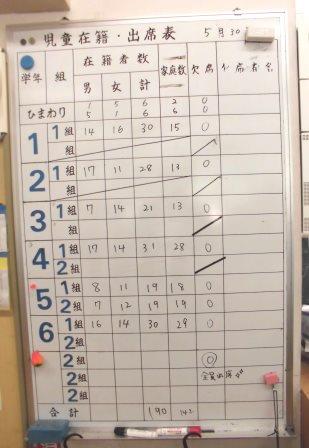 児童在籍・出席表 5月30
学年 組 在籍者数 家庭数 欠席 欠席者名
男 女 計
ひまわり 1 5 6 2 0
5 1 6 6 0
1 1組 14 16 30 15 0
組
2 1組 17 11 28 13 0
組
3 1組 7 14 21 13 0
組
4 1組 17 14 31 28 0
2組
5 1組 8 11 19 18 0
2組 7 12 19 19 0
6 1組 16 14 30 29 0
2組
2組 0
2組 全員出席
2組
合計 190 142